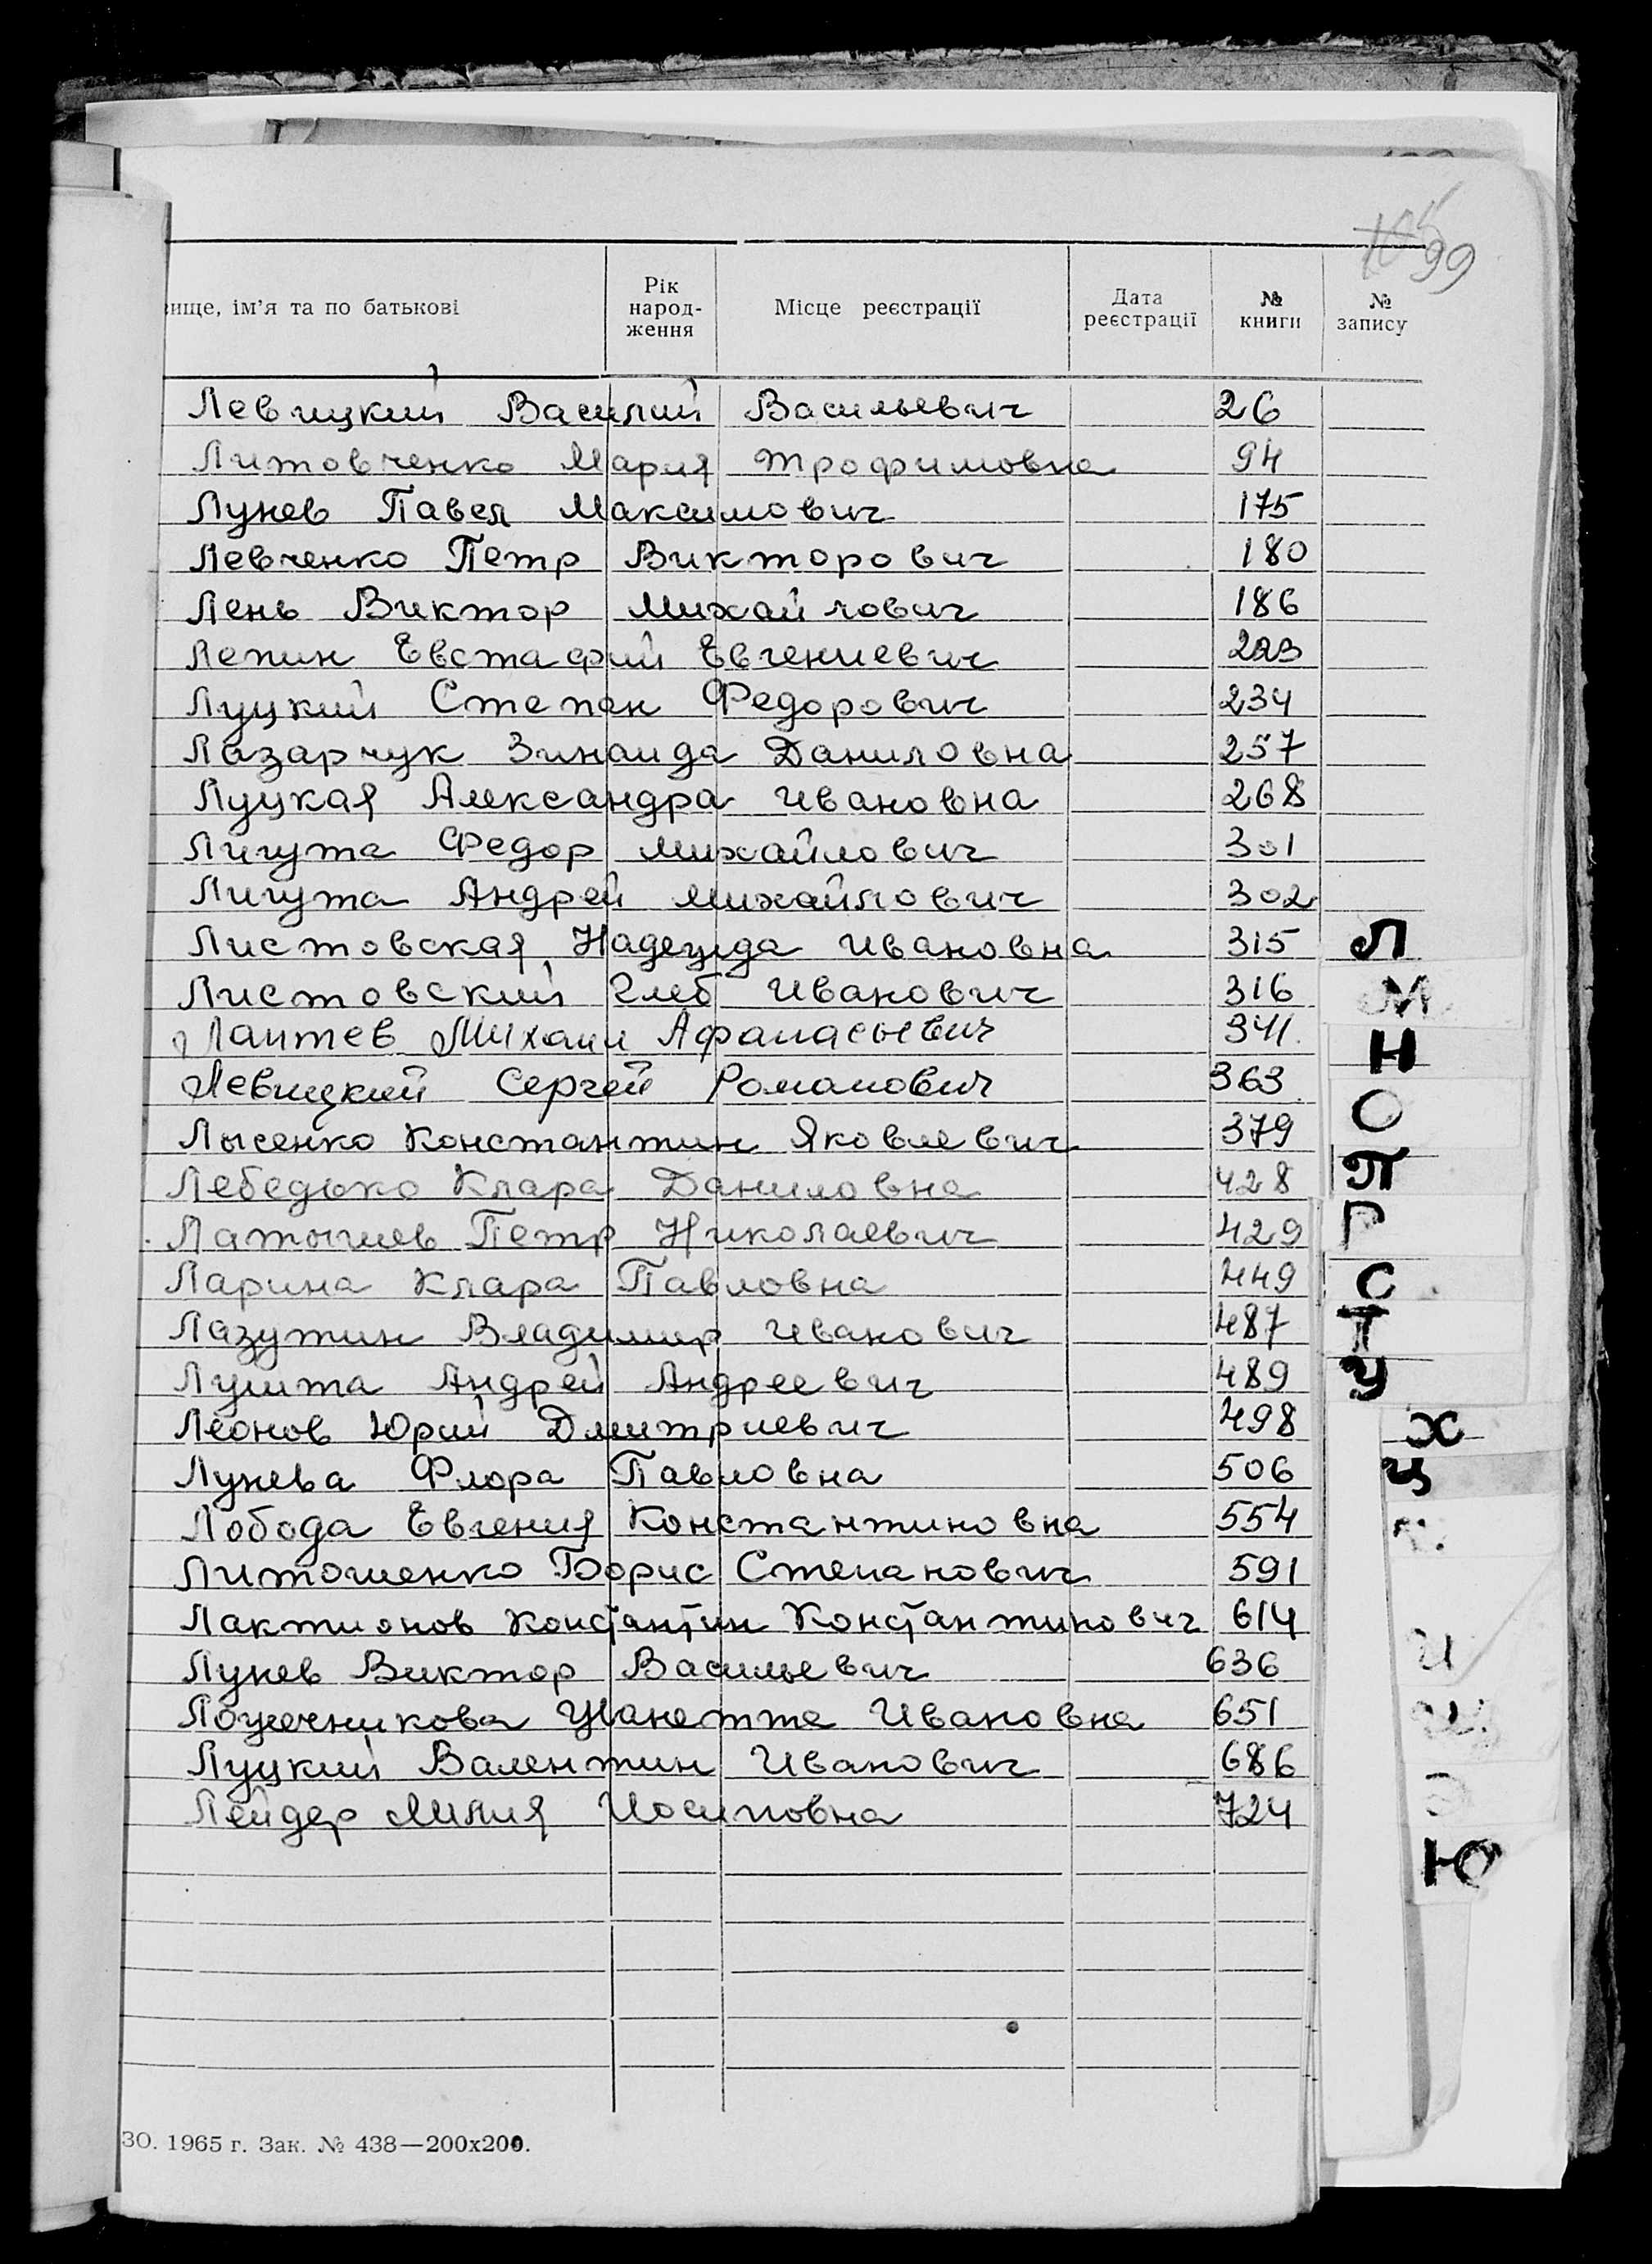 105 99
вище, ім’я та по батькові Рік народ- ження Місце реєстрації Дата реєстрації № книги № запису
Левицкий Василий Васильевич 26
Литовченко Мария Трофимовна 94
Лунев Павел Максимович 175
Левченко Петр Викторович 180
Лень Виктор Михайлович 186
Лепин Евстафий Евгениевич 223
Луцкий Степан Федорович 234
Лазарчук Зинаида Даниловна 257
Луцкая Александра Ивановна 268
Лигута Федор Михайлович 301
Лигута Андрей Михайлович 302
Листовская Надежда Ивановна 315
Листовский Глеб Иванович 316
Лаптев Михаил Афанасьевич 341
Левицкий Сергей Романович 363
Лысенко Константин Яковлевич 379
Лебедько Клара Даниловна 428
Латышев Петр Николаевич 429
Ларина Клара Павловна 449
Лазутин Владимир Иванович 487
Лушта Андрей Андреевич 489
Леонов Юрий Дмитриевич 498
Лунева Флора Павловна 506
Лобода Евгения Константиновна 554
Литошенко Борис Степанович 591
Лактионов Константин Константинович 614
Лунев Виктор Васильевич 636
Ложечникова Жанетта Ивановна 651
Луцкий Валентин Иванович 686
Лейдер Лилия Иосиповна 724
Л
М
Н
О
П
Р
С
Т
У
Х
Ц
Э
Ю
ЗО. 1965 г. Зак. № 438—200х200.